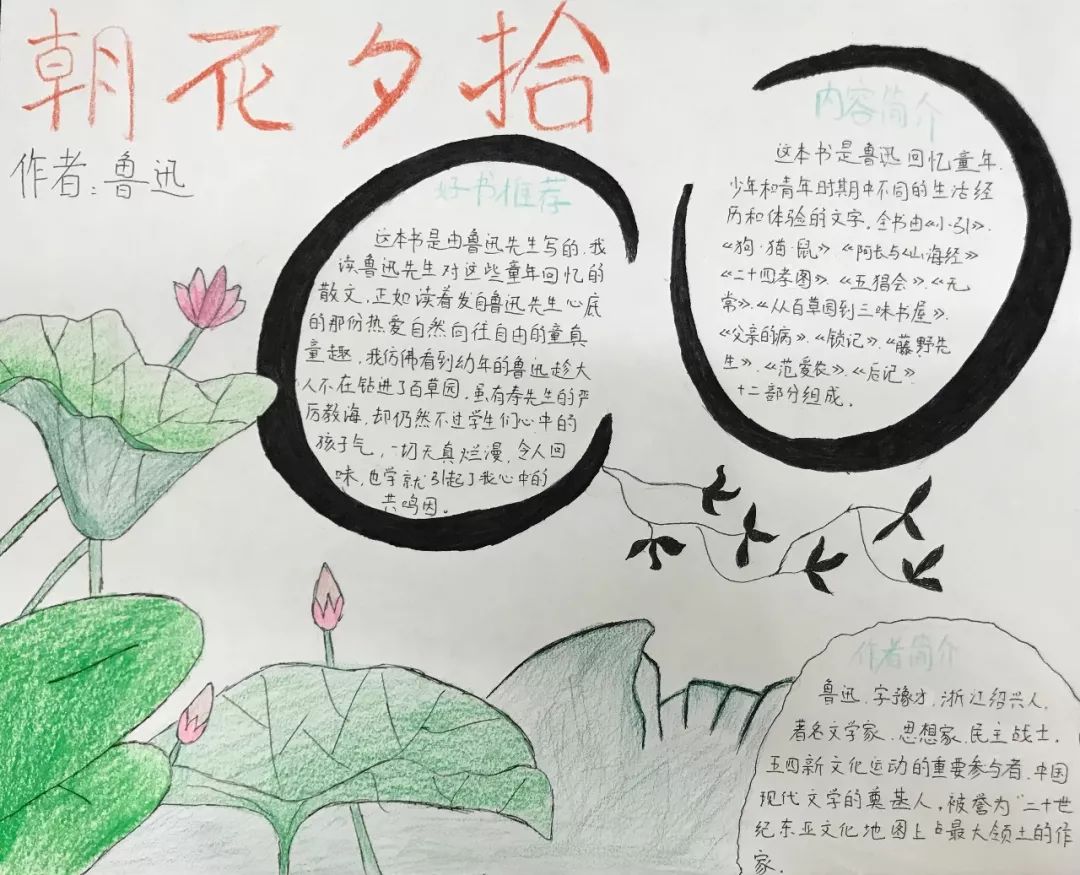 朝花夕拾
作者:鲁迅
好书推荐
这本书是由鲁迅先生写的,我
读鲁迅先生对这些童年回忆的
散文,正如读着发自鲁迅先生心底
的那份热爱自然向往自由的童真
童趣,我仿佛看到幼年的鲁迅趁大
人不在钻进了百草园,虽有寿先生的严
厉教海,却仍然不过学生们心中的
孩子气,一切天真烂漫,令人回
味,也学就引起了我心中的
共鸣因。
内容简介
这本书是鲁迅回忆童年.
少年和青年时期中不同的生活经
历和体验的文字,全书由《小·引》.
《狗·猫·鼠》.《阿长与《山海经》
《二十四孝图》.《五猖会》.《无
常》.《从百草园到三味书屋》.
《父亲的病》.《锁记》.《藤野先
生》.《范爱农》.《后记》.
十二部分组成.
作者简介
鲁迅.字豫才,浙江绍兴人,
著名文学家.思想家.民主战士.
五四新文化运动的重要参与者.中国
现代文学的奠基人,被誉为"二十世
纪东亚文化地图上占最大领土的作
家.